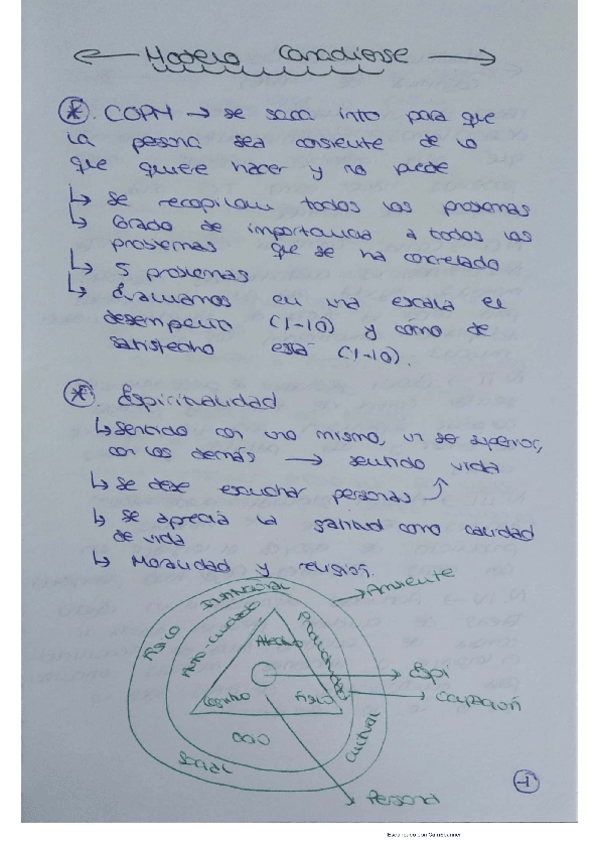 Modelo Canadiense
* . COPM → se saca info para que
la persona sea consiente de lo
que quiere hacer y no puede
↳ se recopilan todos los problemas
↳ Grado de importancia a todos los
problemas que se ha concretado
↳ 5 problemas
↳ Evaluamos en una escala el
desempeño (1-10) y cómo de
satisfecho está (1-10).
* . Espiritualidad
↳ sentido con uno mismo, un ser superior,
con los demás → sentido vida
↳ se debe escuchar personas
↳ se aprecia la salud como calidad
de vida
↳ Moralidad y religión.
Institucional
Ambiente
Físico
Auto-cuidado
Productividad
Afectivo
Espi
Cognitivo
Físico
Ocupación
Ocio
Cultural
Social
Persona
1
Escaneado con CamScanner